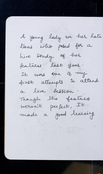 A young lady in her late
teens who posed for a
live study of her
portrait last year
It was one of my
first attempts to attend
a live session
Though the features
weren't perfect, it
made a good learning